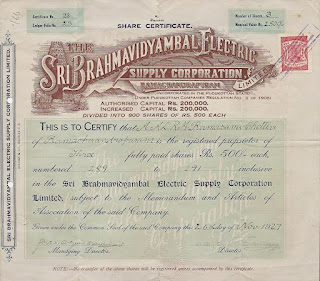 SHARE CERTIFICATE.
Certificate No. 23
Number of Shares. 3
THE
SRI BRAHMAVIDYAMBAL ELECTRIC
SUPPLY CORPORATION,
LIMITED
RAMACHANDRAPURAM
AUTHORISED CAPITAL Rs. 200,000.
INCREASED CAPITAL Rs. 200,000.
DIVIDED INTO 899 SHARES OF RS. 500 EACH
THIS IS TO CERTIFY that
of Ramachandrapuram is the registered proprietor of
Three fully paid shares Rs. 500/- each
numbered 289 to 291 inclusive
in the Sri Brahmavidyambal Electric Supply Corporation
Limited, subject to the Memorandum and Articles of
Association of the said Company.
Given under the Common Seal of the said Company this 26th day of Nov 1927
Managing Director
Director
NOTE:—No transfer of the above shares will be registered unless accompanied by this certificate.
SRI BRAHMAVIDYAMBAL ELECTRIC SUPPLY CORPORATION LIMITED.